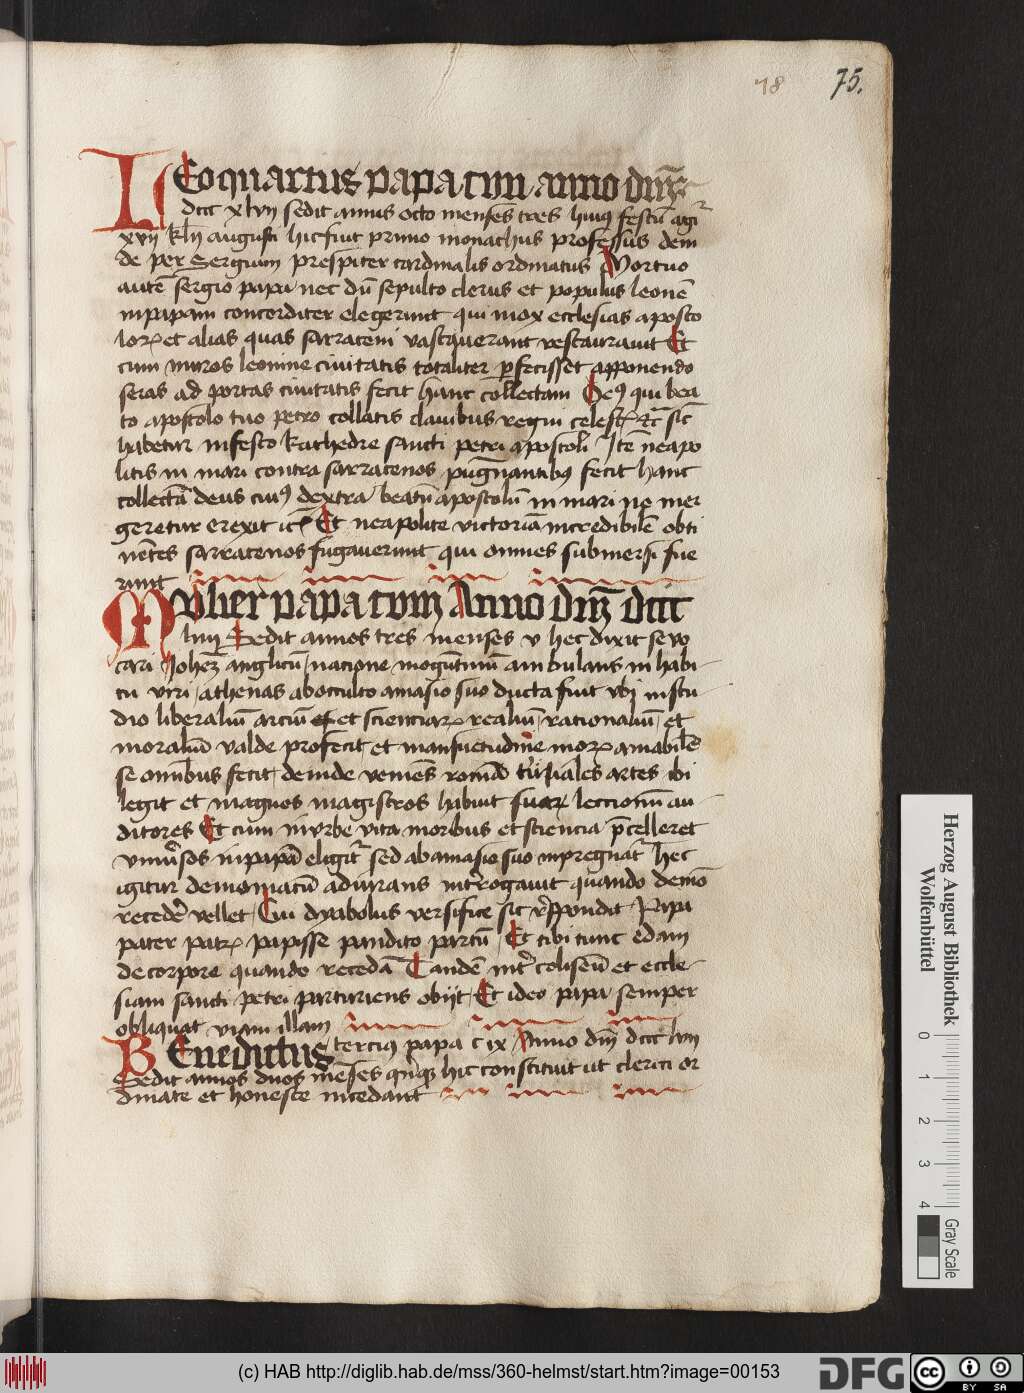 78 75.
Leo quartus papa cvii anno dm̄
dccc xlvii sedit annis octo menses tres huiq festū agit̄
xvii kl̄n augusti hic fuit primo monachus professus dein
de per Sergium prespiter cardinalis ordinatus Mortuo
autē sergio papa nec dū sepulto clerus et populus leonē
in papam concorditer elegerunt qui mox ecclesias aposto
lorꝝ et alias quas sarraceni vastauerant restaurauit Et
cum muros leonine ciuitatis totaliter ꝑfecisset apponendo
seras ad portas ciuitatis fecit hanc collectam Deꝰ qui bea
to apostolo tuo petro collatis clauibus regni celestꝭ ꝛc̄ sic̄
habetur in festo kathedre sancti petri apostoli Itē neapo
litis in mari contra sarracenos pugnantibꝰ fecit hanc
collectā deus cuiꝰ dextra beatū apostolū in mari ne mer
geretur erexit ꝛc̄ Et neapolite victoriā incredibilē obti
nētes sarracenos fugauerunt qui omnes submersi fue
runt
Mulier papa cviii Anno dm̄ dccc
liiij Sedit annos tres menses v hec dixit se vo
cari Johēz anglicū nacione mogūtinū ambulans in habi
tu viri athenas ab occulto amasio suo ducta fuit vbi in stu
dio liberaliū arciū et scienciarꝝ realiū racionaliū et
moraliū valde profecit et mansuetudine morꝝ amabilē
se omībus fecit deinde veniēs romā triuiales artes ibi
legit et magnos magistros habuit suarꝝ leccionū au
ditores Et cum in vrbe vita moribus et sciencia p̄celleret
vniu̾sos in papā eligit̄ sed ab amasio suo inpregnat̄ hec
igitur demoniacū adiurans int̄rogauit quando demō
recedē vellet Cui dyabolus versifice sic r̄spondit Papa
pater patrꝝ papisse pandito partū Et tibi tunc edam
de corpore quando recedā Tandē int̄ coliseū et eccle
siam sancti petri parturiens obijt Et ideo papa semper
obliquat viam illam
Benedictus terciꝰ papa c ix Anno dm̄ dccc lvii
Sedit annos duos mēses qnqꝫ hic constituit ut clerici or
dinate et honeste incedant
Herzog August Bibliothek
Wolfenbüttel
0 1 2 3 4
Gray Scale
(c) HAB http://diglib.hab.de/mss/360-helmst/start.htm?image=00153
DFG
cc BY SA